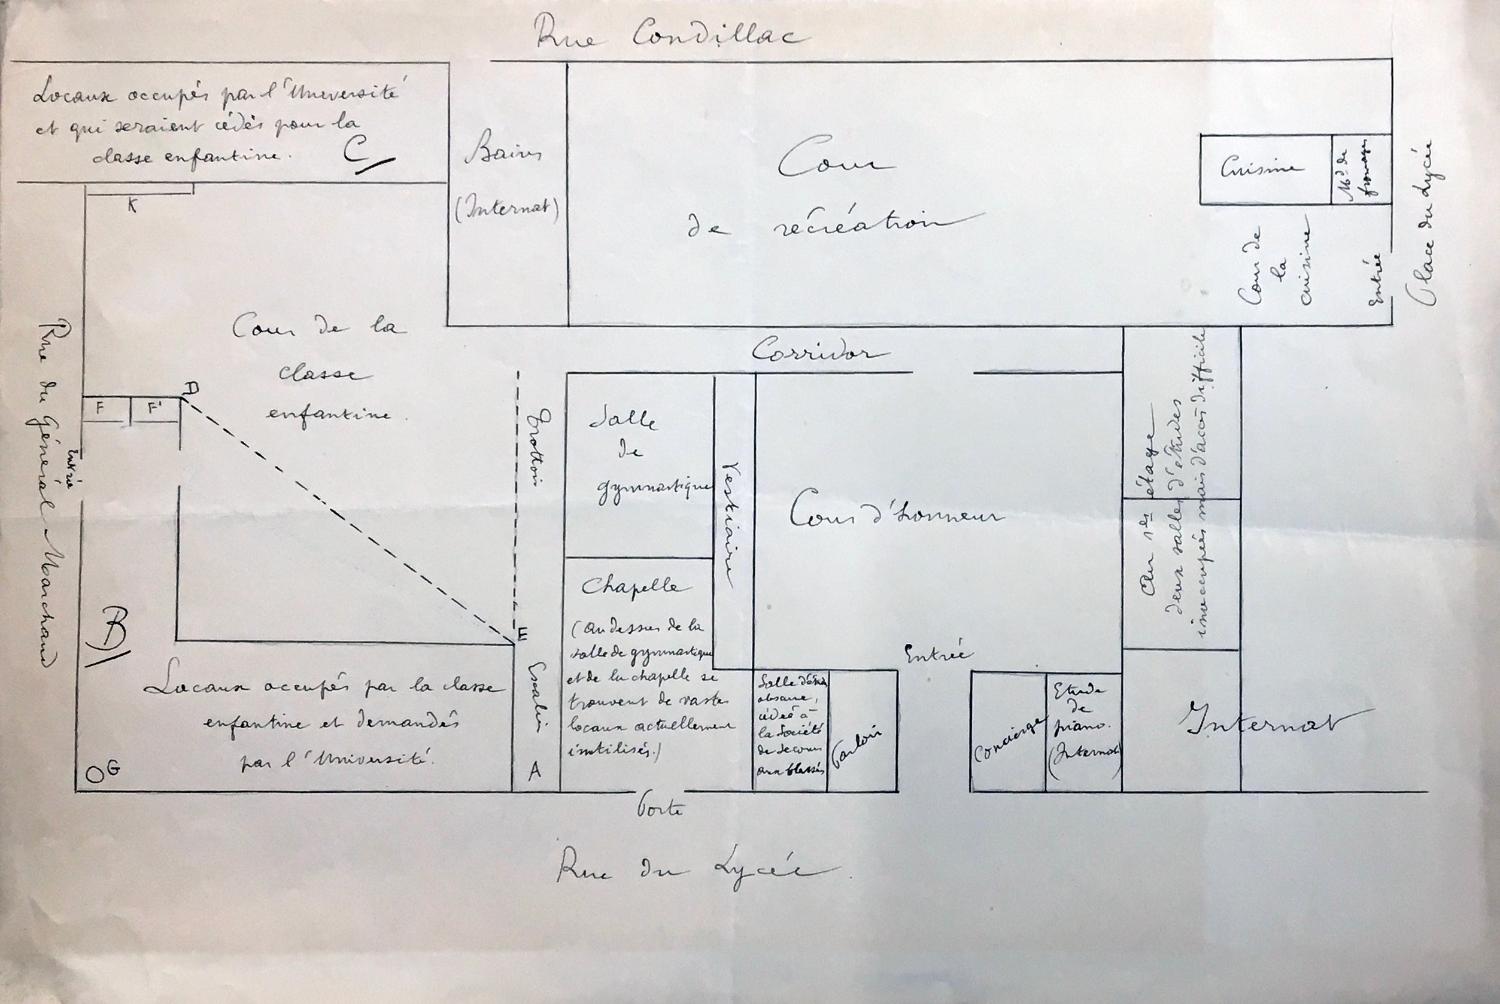 Rue Condillac
Locaux occupés par l'Université
et qui seraient cédés pour la
classe enfantine. C
K
Bains
(Internat)
Cour
de récréation
Cuisine
Md. de
fromages
Cour de
la
cuisine
Entrée
Place du Lycée
Rue du Général Marchand
Cour de la
classe
enfantine.
A
F F'
Entrée
B
Trottoir
E
Escalier
A
Corridor
Salle
de
gymnastique
Vestiaire
Chapelle
(Au dessus de la
salle de gymnastique
et de la chapelle se
trouvent de vastes
locaux actuellement
inutilisés.)
Cour d'honneur
Entrée
Au 1er étage
deux salles d'études
inoccupées mais d'accès difficile
Locaux occupés par la classe
enfantine et demandés
par l'Université.
G
Salle
obscure,
cédée à
la Société
de secours
aux blessés
Parloir
Concierge
Etude
de
piano.
(Internat)
Internat
Porte
Rue du Lycée.